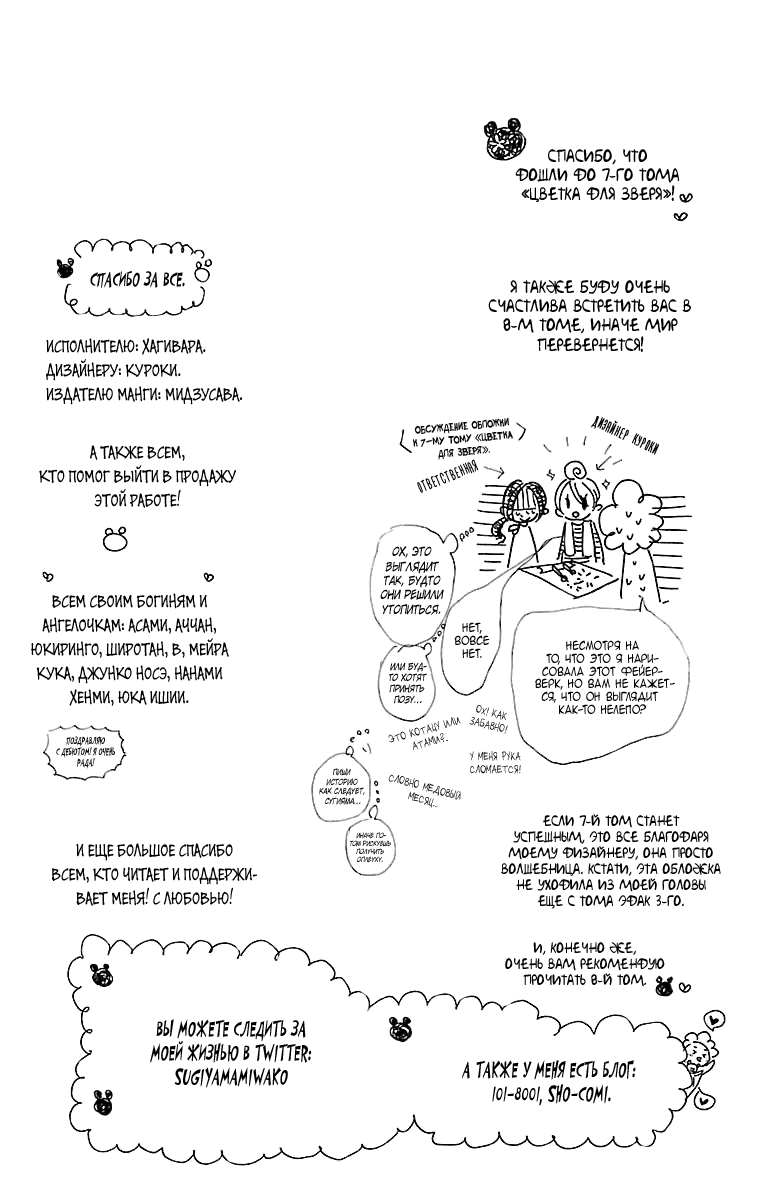 СПАСИБО, ЧТО
ДОШЛИ ДО 7-ГО ТОМА
«ЦВЕТКА ДЛЯ ЗВЕРЯ»!
Я ТАКЖЕ БУДУ ОЧЕНЬ
СЧАСТЛИВА ВСТРЕТИТЬ ВАС В
8-М ТОМЕ, ИНАЧЕ МИР
ПЕРЕВЕРНЕТСЯ!
ОБСУЖДЕНИЕ ОБЛОЖКИ
К 7-МУ ТОМУ «ЦВЕТКА
ДЛЯ ЗВЕРЯ».
ДИЗАЙНЕР КУРОКИ
ОТВЕТСТВЕННАЯ
ОХ, ЭТО
ВЫГЛЯДИТ
ТАК, БУДТО
ОНИ РЕШИЛИ
УТОПИТЬСЯ.
НЕТ,
ВОВСЕ
НЕТ.
НЕСМОТРЯ НА
ТО, ЧТО ЭТО Я НАРИ-
СОВАЛА ЭТОТ ФЕЙЕР-
ВЕРК, НО ВАМ НЕ КАЖЕТ-
СЯ, ЧТО ОН ВЫГЛЯДИТ
КАК-ТО НЕЛЕПО?
ИЛИ БУД-
ТО ХОТЯТ
ПРИНЯТЬ
ПОЗУ...
ОХ! КАК
ЗАБАВНО!
ЭТО КОТАЦУ ИЛИ
АТАМИ?..
У МЕНЯ РУКА
СЛОМАЕТСЯ!
СЛОВНО МЕДОВЫЙ
МЕСЯЦ...
ПИШИ
ИСТОРИЮ
КАК СЛЕДУЕТ,
СУГИЯМА...
ИНАЧЕ ПО-
ТОМ РИСКУЕШЬ
ПОЛУЧИТЬ
ОПЛЕУХУ.
ЕСЛИ 7-Й ТОМ СТАНЕТ
УСПЕШНЫМ, ЭТО ВСЕ БЛАГОДАРЯ
МОЕМУ ДИЗАЙНЕРУ, ОНА ПРОСТО
ВОЛШЕБНИЦА. КСТАТИ, ЭТА ОБЛОЖКА
НЕ УХОДИЛА ИЗ МОЕЙ ГОЛОВЫ
ЕЩЕ С ТОМА ЭДАК 3-ГО.
И, КОНЕЧНО ЖЕ,
ОЧЕНЬ ВАМ РЕКОМЕНДУЮ
ПРОЧИТАТЬ 8-Й ТОМ.
СПАСИБО ЗА ВСЕ.
ИСПОЛНИТЕЛЮ: ХАГИВАРА.
ДИЗАЙНЕРУ: КУРОКИ.
ИЗДАТЕЛЮ МАНГИ: МИДЗУСАВА.
А ТАКЖЕ ВСЕМ,
КТО ПОМОГ ВЫЙТИ В ПРОДАЖУ
ЭТОЙ РАБОТЕ!
ВСЕМ СВОИМ БОГИНЯМ И
АНГЕЛОЧКАМ: АСАМИ, АЧЧАН,
ЮКИРИНГО, ШИРОТАН, В, МЕЙРА
КУКА, ДЖУНКО НОСЭ, НАНАМИ
ХЕНМИ, ЮКА ИШИИ.
ПОЗДРАВЛЯЮ
С ДЕБЮТОМ! Я ОЧЕНЬ
РАДА!
И ЕЩЕ БОЛЬШОЕ СПАСИБО
ВСЕМ, КТО ЧИТАЕТ И ПОДДЕРЖИ-
ВАЕТ МЕНЯ! С ЛЮБОВЬЮ!
ВЫ МОЖЕТЕ СЛЕДИТЬ ЗА
МОЕЙ ЖИЗНЬЮ В TWITTER:
SUGIYAMAMIWAKO
А ТАКЖЕ У МЕНЯ ЕСТЬ БЛОГ:
101-8001, SHO-COMI.